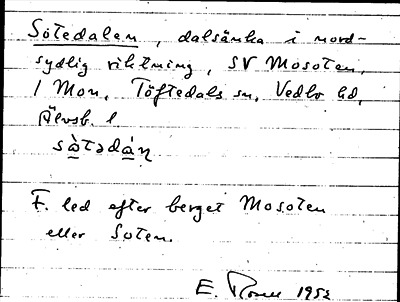 Sotedalen, dalsänka i nord-
sydlig riktning, SV Mosoten,
1 Mon, Töftedals sn, Vedbo hd,
Älvsb. l.
sὰtədάn̥
F. led efter berget Mosoten
eller Soten.
E. 1952